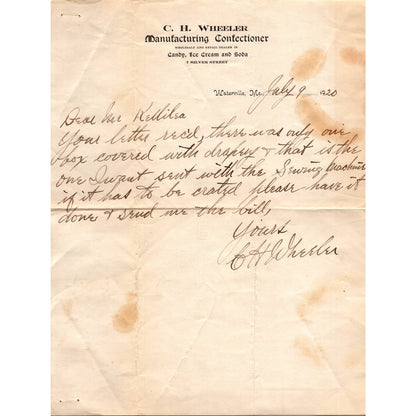 C. H. Wheeler
Manufacturing Confectioner
WHOLESALE AND RETAIL DEALER IN
Candy, Ice Cream and Soda
7 SILVER STREET
Waterville, Me., July 9 1920
Dear Mr Kellilea
Your letter recd, there was only one
box covered with drapery & that is the
one I want sent with the Sewing Machine
if it has to be crated please have it
done & send me the bill,
Yours
C H Wheeler